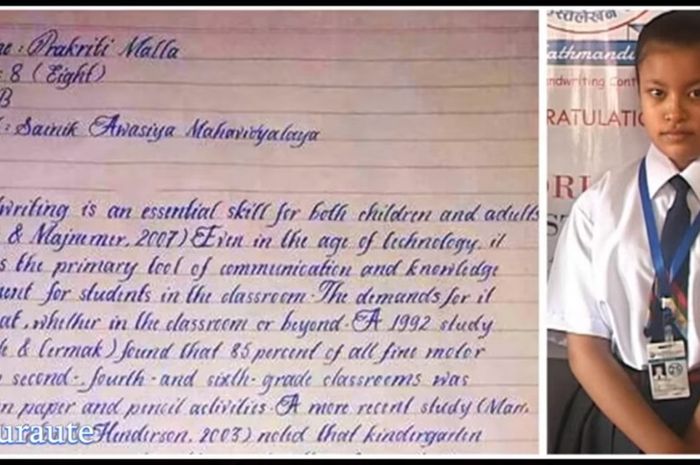 ne : Prakriti Malla
: 8 (Eight)
B
: Sainik Awasiya Mahavidyalaya
dwriting is an essential skill for both children and adults
& Majnemer, 2007) Even in the age of technology, it
s the primary tool of communication and knowledge
ment for students in the classroom. The demands for it
at, whether in the classroom or beyond. A 1992 study
& Cermak) found that 85 percent of all fine motor
second-, fourth-and sixth-grade classrooms was
n paper and pencil activities. A more recent study (Marr,
Henderson, 2003) noted that kindergarten
uraute
स्तलेखन
Kathmandu
andwriting Cont
RATULATIO
ORL
ST